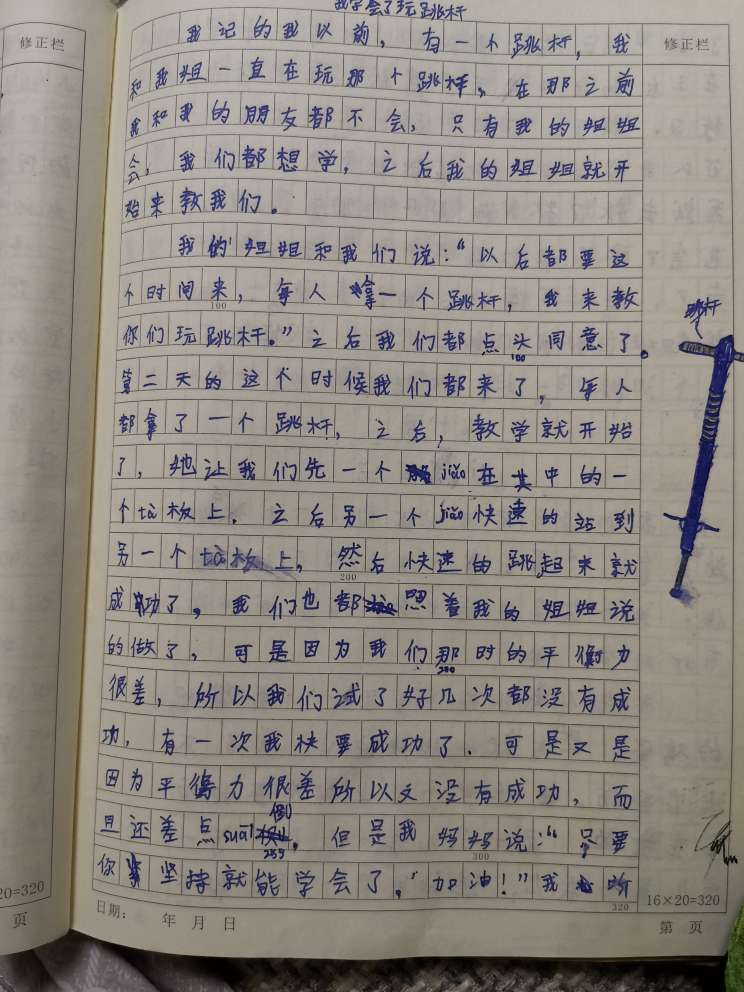 我学会了玩跳杆
修正栏
修正栏
我记的我以前，有一个跳杆，我
和我姐一直在玩那个跳杆。在那之前
我和我的朋友都不会，只有我的姐姐
会，我们都想学，之后我的姐姐就开
始来教我们。
我的姐姐和我们说：“以后都要这
个时间来，每人拿一个跳杆，我来教
100
你们玩跳杆。”之后我们都点头同意了。
100
跳杆
第二天的这个时候我们都来了，每人
都拿了一个跳杆，之后，教学就开始
了，她让我们先一个jiǎo在其中的一
个tà板上，之后另一个jiǎo快速的站到
另一个tà板上，然后快速的跳起来就
200
成功了，我们也都照着我的姐姐说
的做了，可是因为我们那时的平衡力
200
很差，所以我们试了好几次都没有成
功，有一次我快要成功了．可是又是
因为平衡力很差所以又没有成功，而
且还差点suāi倒，但是我妈妈说：“只要
255
300
你坚持就能学会了，“加油！”我听
320
20=320
16×20=320
日期： 年 月 日
页
第 页